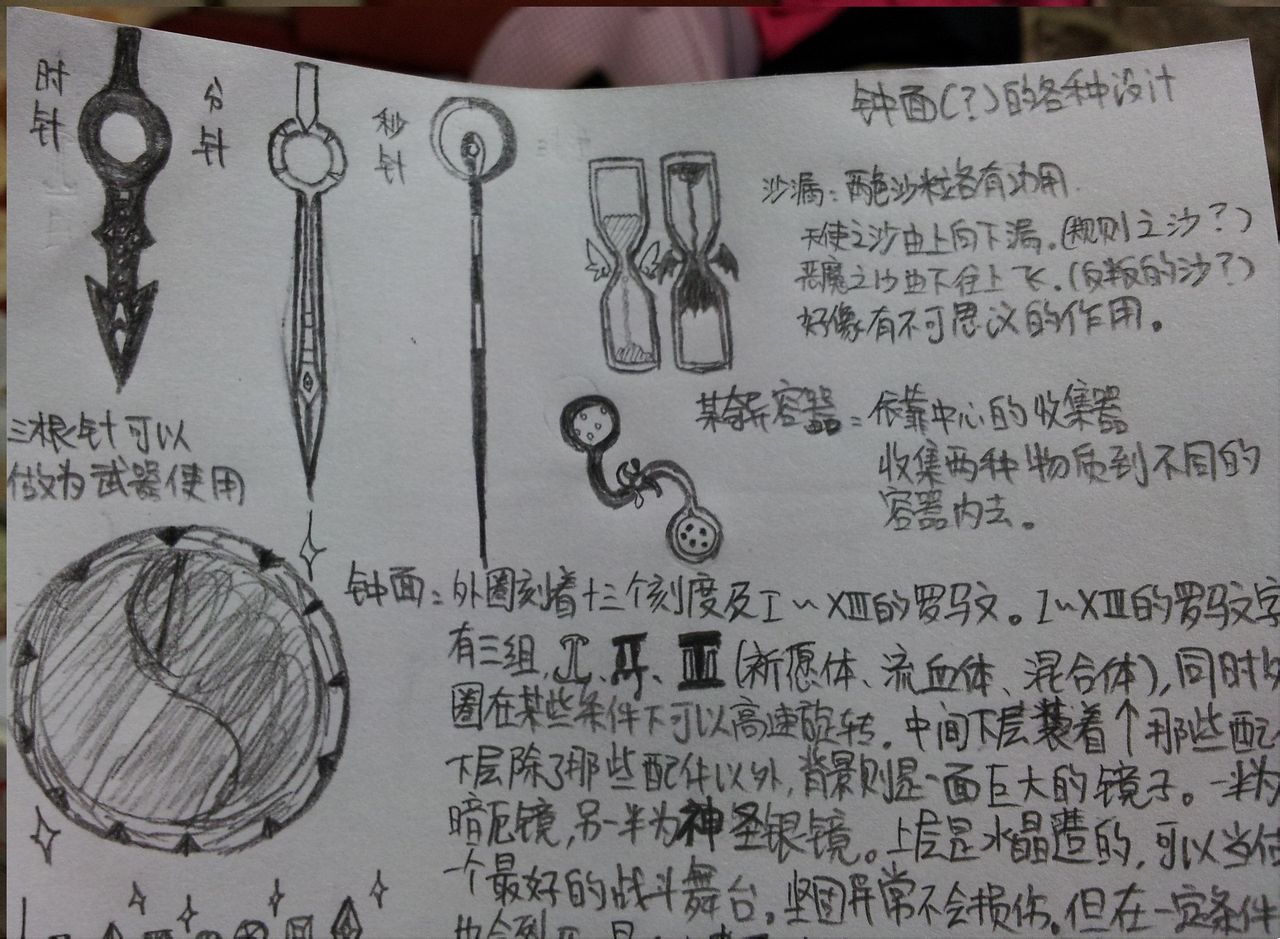 时针
分针
秒针
钟面(?)的各种设计
沙漏:两色沙粒各有功用.
天使之沙由上向下漏.(规则之沙?)
恶魔之沙由下往上飞.(反叛的沙?)
好像有不可思议的作用。
三根针可以
做为武器使用
某奇异容器:依靠中心的收集器
收集两种物质到不同的
容器内去。
钟面:外圈刻着十三个刻度及I~XIII的罗马文。I~XIII的罗马文字
有三组,I、II、III(祈愿体、流血体、混合体),同时外
圈在某些条件下可以高速旋转.中间下层装着↑那些配
下层除了那些配件以外,背景则是一面巨大的镜子。一半为
暗厄镜,另一半为神圣银镜。上层是水晶造的,可以当作
一个最好的战斗舞台。坚固异常不会损伤.但在一定条件